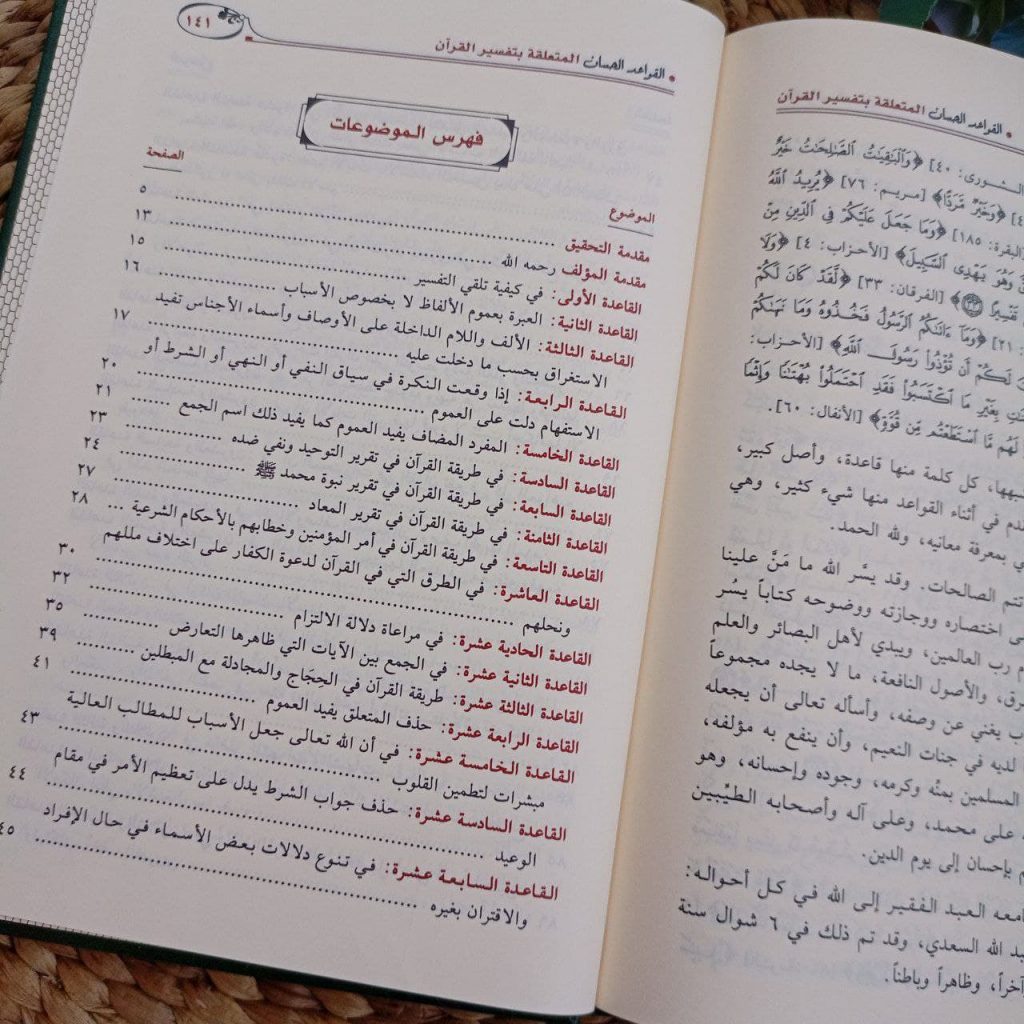 • القواعد الحسان المتعلقة بتفسير القرآن
الشورى: ٤٠] ﴿وَٱلْبَـٰقِيَـٰتُ ٱلصَّـٰلِحَـٰتُ خَيْرٌ
﴿وَخَيْرٌ مَّرَدًّا﴾ [مريم: ٧٦] ﴿يُرِيدُ ٱللَّهُ
البقرة: ١٨٥] ﴿وَمَا جَعَلَ عَلَيْكُمْ فِى ٱلدِّينِ مِنْ
وَهُوَ يَهْدِى ٱلسَّبِيلَ﴾ [الأحزاب: ٤] ﴿وَلَا
تَفْسِيرًا ٣٣﴾ [الفرقان: ٣٣] ﴿لَّقَدْ كَانَ لَكُمْ
٢١] ﴿وَمَآ ءَاتَىٰكُمُ ٱلرَّسُولُ فَخُذُوهُ وَمَا نَهَىٰكُمْ
لَكُمْ أَن تُؤْذُوا۟ رَسُولَ ٱللَّهِ﴾ [الأحزاب:
بِغَيْرِ مَا ٱكْتَسَبُوا۟ فَقَدِ ٱحْتَمَلُوا۟ بُهْتَـٰنًا وَإِثْمًا
لَهُم مَّا ٱسْتَطَعْتُم مِّن قُوَّةٍ﴾ [الأنفال: ٦٠].
كل كلمة منها قاعدة، وأصل كبير،
في أثناء القواعد منها شيء كثير، وهي
بمعرفة معانيه، ولله الحمد.
تتم الصالحات. وقد يسَّر الله ما مَنَّ علينا
اختصاره ووجازته ووضوحه كتاباً يسُر
رب العالمين، ويبدي لأهل البصائر والعلم
والأصول النافعة، ما لا يجده مجموعاً
يغني عن وصفه، وأسأله تعالى أن يجعله
لديه في جنات النعيم، وأن ينفع به مؤلفه،
المسلمين بمنِّه وكرمه، وجوده وإحسانه، وهو
على محمد، وعلى آله وأصحابه الطيِّبين
بإحسان إلى يوم الدين.
العبد الفقير إلى الله في كل أحواله:
الله السعدي، وقد تم ذلك في ٦ شوال سنة
وظاهراً وباطناً.
• القواعد الحسان المتعلقة بتفسير القرآن ١٤١
فهرس الموضوعات
الموضوع الصفحة
مقدمة التحقيق ٥
مقدمة المؤلف رحمه الله ١٣
القاعدة الأولى: في كيفية تلقي التفسير ١٥
القاعدة الثانية: العبرة بعموم الألفاظ لا بخصوص الأسباب ١٦
القاعدة الثالثة: الألف واللام الداخلة على الأوصاف وأسماء الأجناس تفيد
الاستغراق بحسب ما دخلت عليه ١٧
القاعدة الرابعة: إذا وقعت النكرة في سياق النفي أو النهي أو الشرط أو
الاستفهام دلت على العموم ٢٠
القاعدة الخامسة: المفرد المضاف يفيد العموم كما يفيد ذلك اسم الجمع ٢١
القاعدة السادسة: في طريقة القرآن في تقرير التوحيد ونفي ضده ٢٣
القاعدة السابعة: في طريقة القرآن في تقرير نبوة محمد ﷺ ٢٤
القاعدة الثامنة: في طريقة القرآن في تقرير المعاد ٢٧
القاعدة التاسعة: في طريقة القرآن في أمر المؤمنين وخطابهم بالأحكام الشرعية ... ٢٨
القاعدة العاشرة: في الطرق التي في القرآن لدعوة الكفار على اختلاف مللهم
ونحلهم ٣٠
القاعدة الحادية عشرة: في مراعاة دلالة الالتزام ٣٢
القاعدة الثانية عشرة: في الجمع بين الآيات التي ظاهرها التعارض ٣٥
القاعدة الثالثة عشرة: طريقة القرآن في الحِجَاج والمجادلة مع المبطلين ٣٩
القاعدة الرابعة عشرة: حذف المتعلق يفيد العموم ٤١
القاعدة الخامسة عشرة: في أن الله تعالى جعل الأسباب للمطالب العالية
مبشرات لتطمين القلوب ٤٣
القاعدة السادسة عشرة: حذف جواب الشرط يدل على تعظيم الأمر في مقام
الوعيد ٤٤
القاعدة السابعة عشرة: في تنوع دلالات بعض الأسماء في حال الإفراد
والاقتران بغيره ٤٥